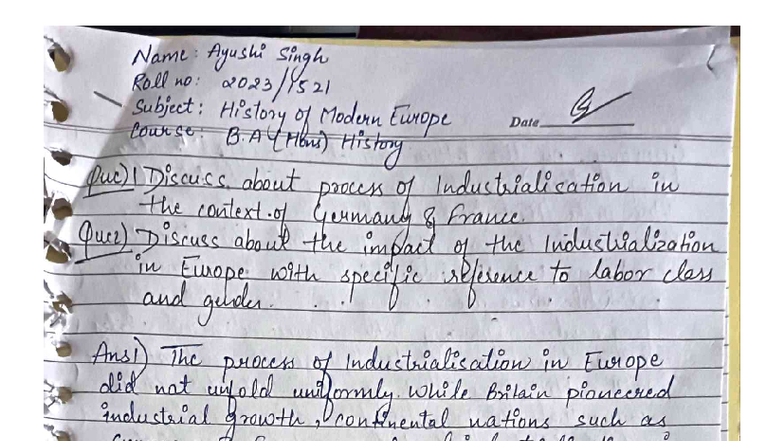 Name: Ayushi Singh
Roll no: 2023/1521
Subject: History of Modern Europe
Date
Course: B.A (Hons) History
Que)1 Discuss about process of Industrialisation in
the context of Germany & France.
Que2) Discuss about the impact of the Industrialization
in Europe with specific reference to labor class
and gender.
Ans1) The process of Industrialisation in Europe
did not unfold uniformly. While Britain pioneered
industrial growth, continental nations such as